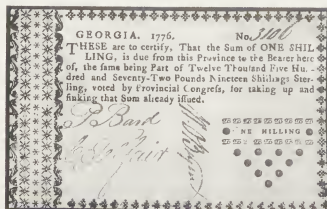 GEORGIA. 1776. No. 3106
THESE are to certify, That the Sum of ONE SHIL
LING, is due from this Province to the Bearer here
of, the same being Part of Twelve Thousand Five Hu
dred and Seventy-Two Pounds Nineteen Shillings Ster-
ling, voted by Provincial Congress, for taking up and
sinking that Sum already issued.
NE HILLING